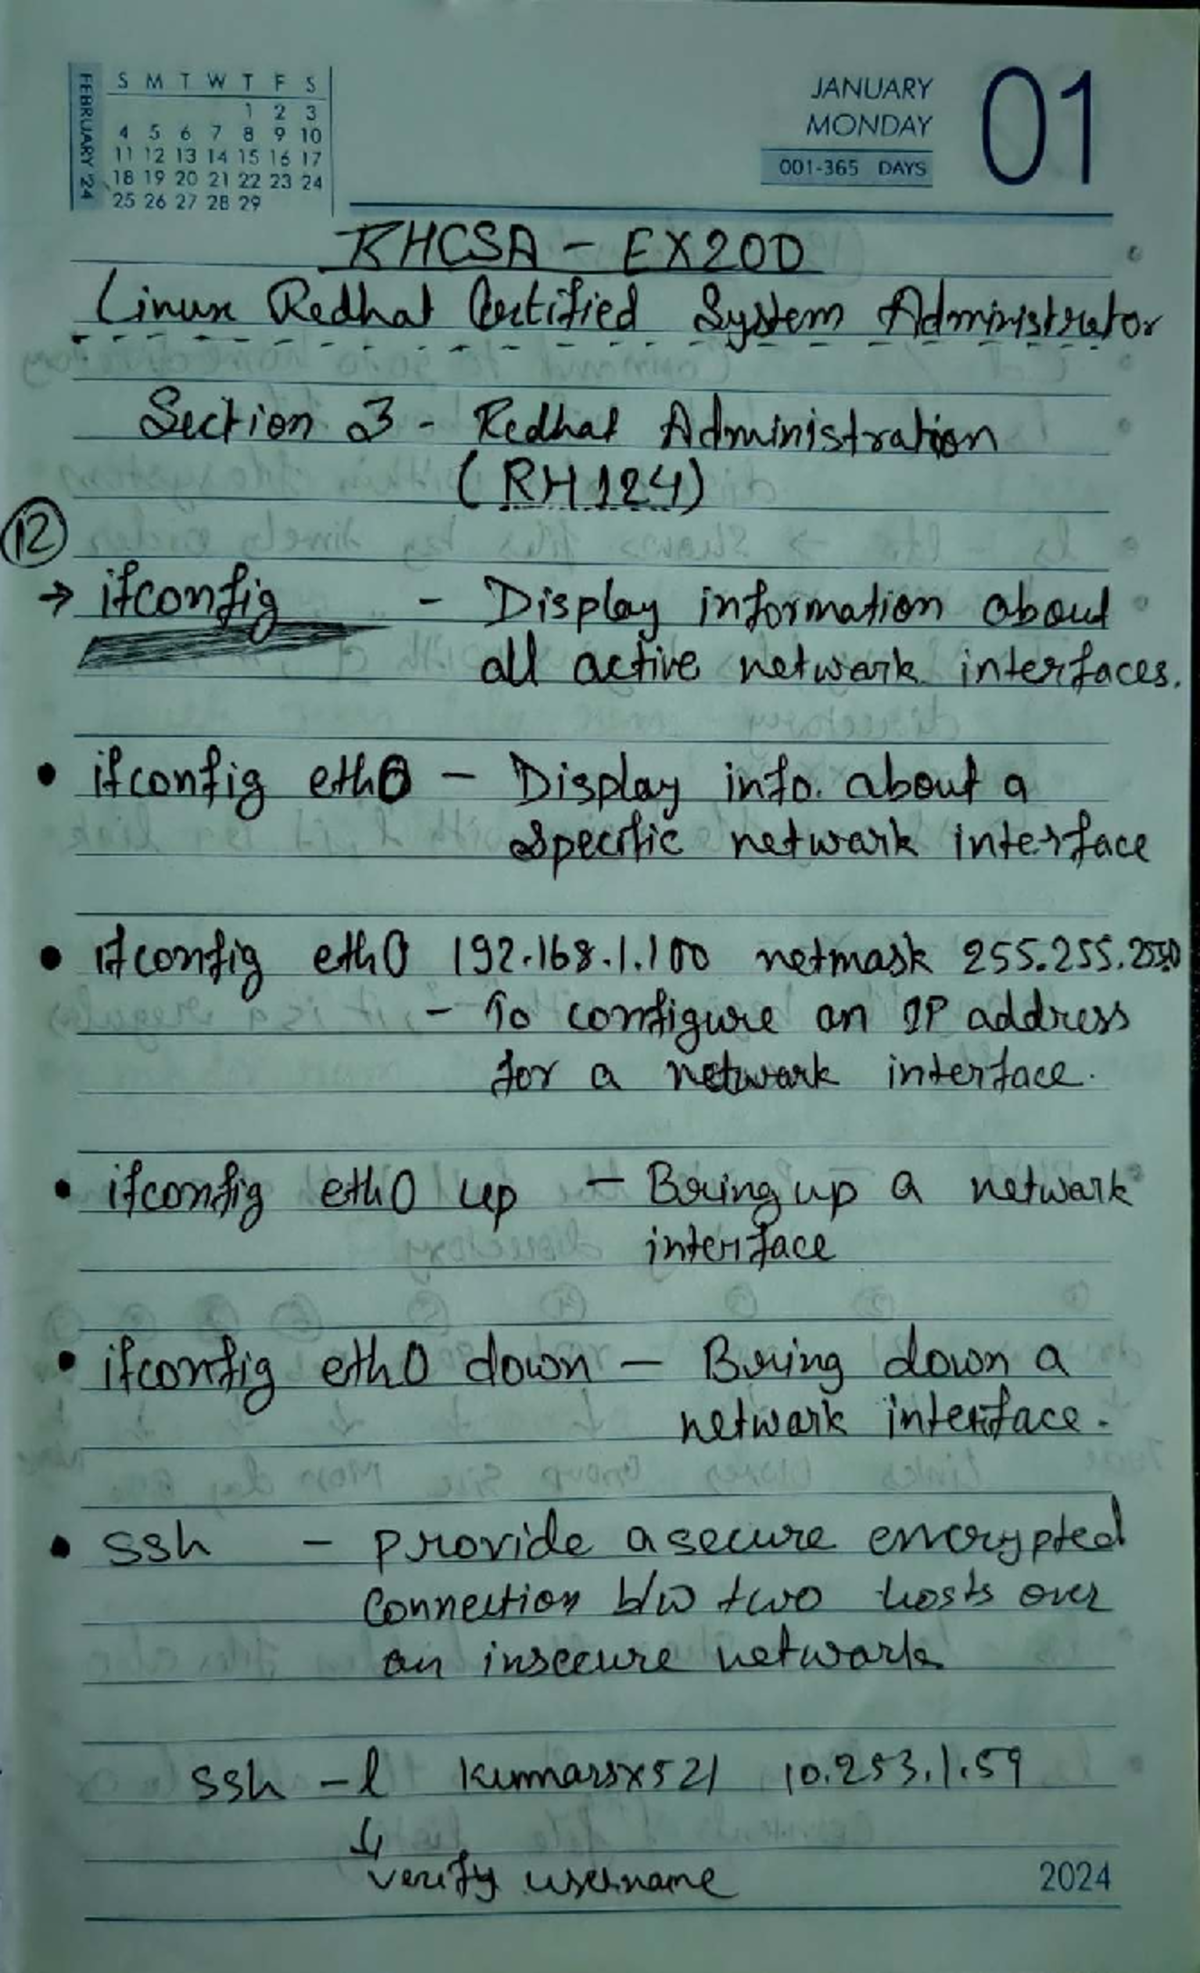 FEBRUARY '24
S M T W T F S
1 2 3
4 5 6 7 8 9 10
11 12 13 14 15 16 17
18 19 20 21 22 23 24
25 26 27 28 29
JANUARY
MONDAY
001-365 DAYS
01
RHCSA - EX200
Linux Redhat Certified System Administrator
Section 3 - Redhat Administration
(RH124)
12
→ ifconfig - Display information about
all active network interfaces.
• ifconfig eth0 - Display info. about a
specific network interface
• ifconfig eth0 192.168.1.100 netmask 255.255.255.0
- To configure an IP address
for a network interface.
• ifconfig eth0 up - Bring up a network
interface
• ifconfig eth0 down - Bring down a
network interface.
• ssh - provide a secure encrypted
connection b/w two hosts over
an insecure network
ssh -l kumarsx521 10.253.1.59
↳
verify username
2024